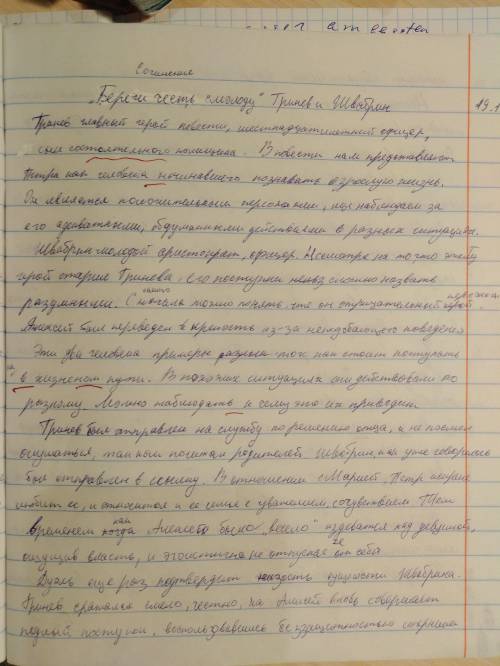 Сочинение
„Береги честь смолоду" Гринев и Швабрин 19.1
Гринев главный герой повести, шестнадцатилетний офицер,
сын состоятельного помещика. В повести нам представляют
Петра как человека начинавшего познавать взрослую жизнь.
Он является положительным персонажем, мы наблюдаем за
его адекватными, обдуманными действиями в разных ситуациях.
Швабрин молодой аристократ, офицер. Несмотря на то что этот
герой старше Гринева его поступки невозможно назвать
разумными. С самого начала можно понять что он отрицательный персонаж.
Алексей был переведен в крепость из-за неподобающего поведения
Эти два человека примеры разных того как стоит поступать
в жизненом пути. В похожих ситуациях они действовали по
разному. Можно наблюдать и к чему это их приводит.
Гринев был отправлен на службу по решению отца, и не посмел
ослушаться, так как почитал родителей Швабрин, как уже говорилось
был отправлен в ссылку. В отношении с Марией, Петр искрене
любит ее, и относится к ее семье с уважением, сочувствием Тем
временем как Алексею было „весело" издеватся над девушкой,
ощущив власть, и эгоистично не отпускае ее от себя
Дуэль еще раз подтвердит низость сущности Швабрина.
Гринев сражался смело, честно, но Алексей вновь совершает
подлый поступок, воспользовавшись беззащитностью соперника